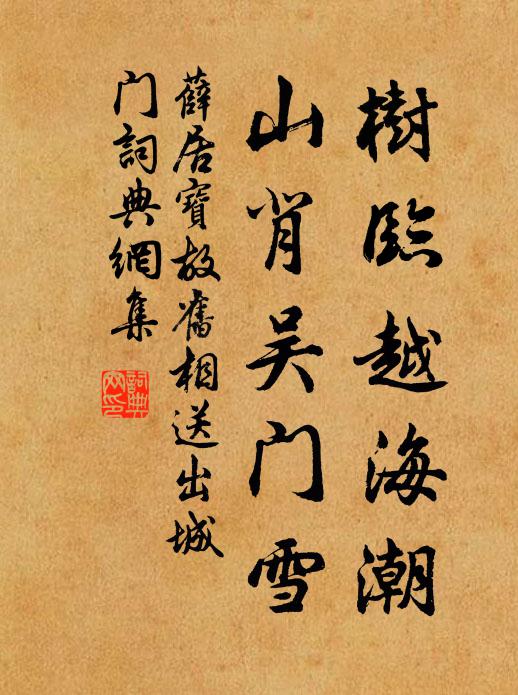 樹臨越海潮
山背吳門雪
薛居寶故舊相送出城
門詞典網集
詞典
网印